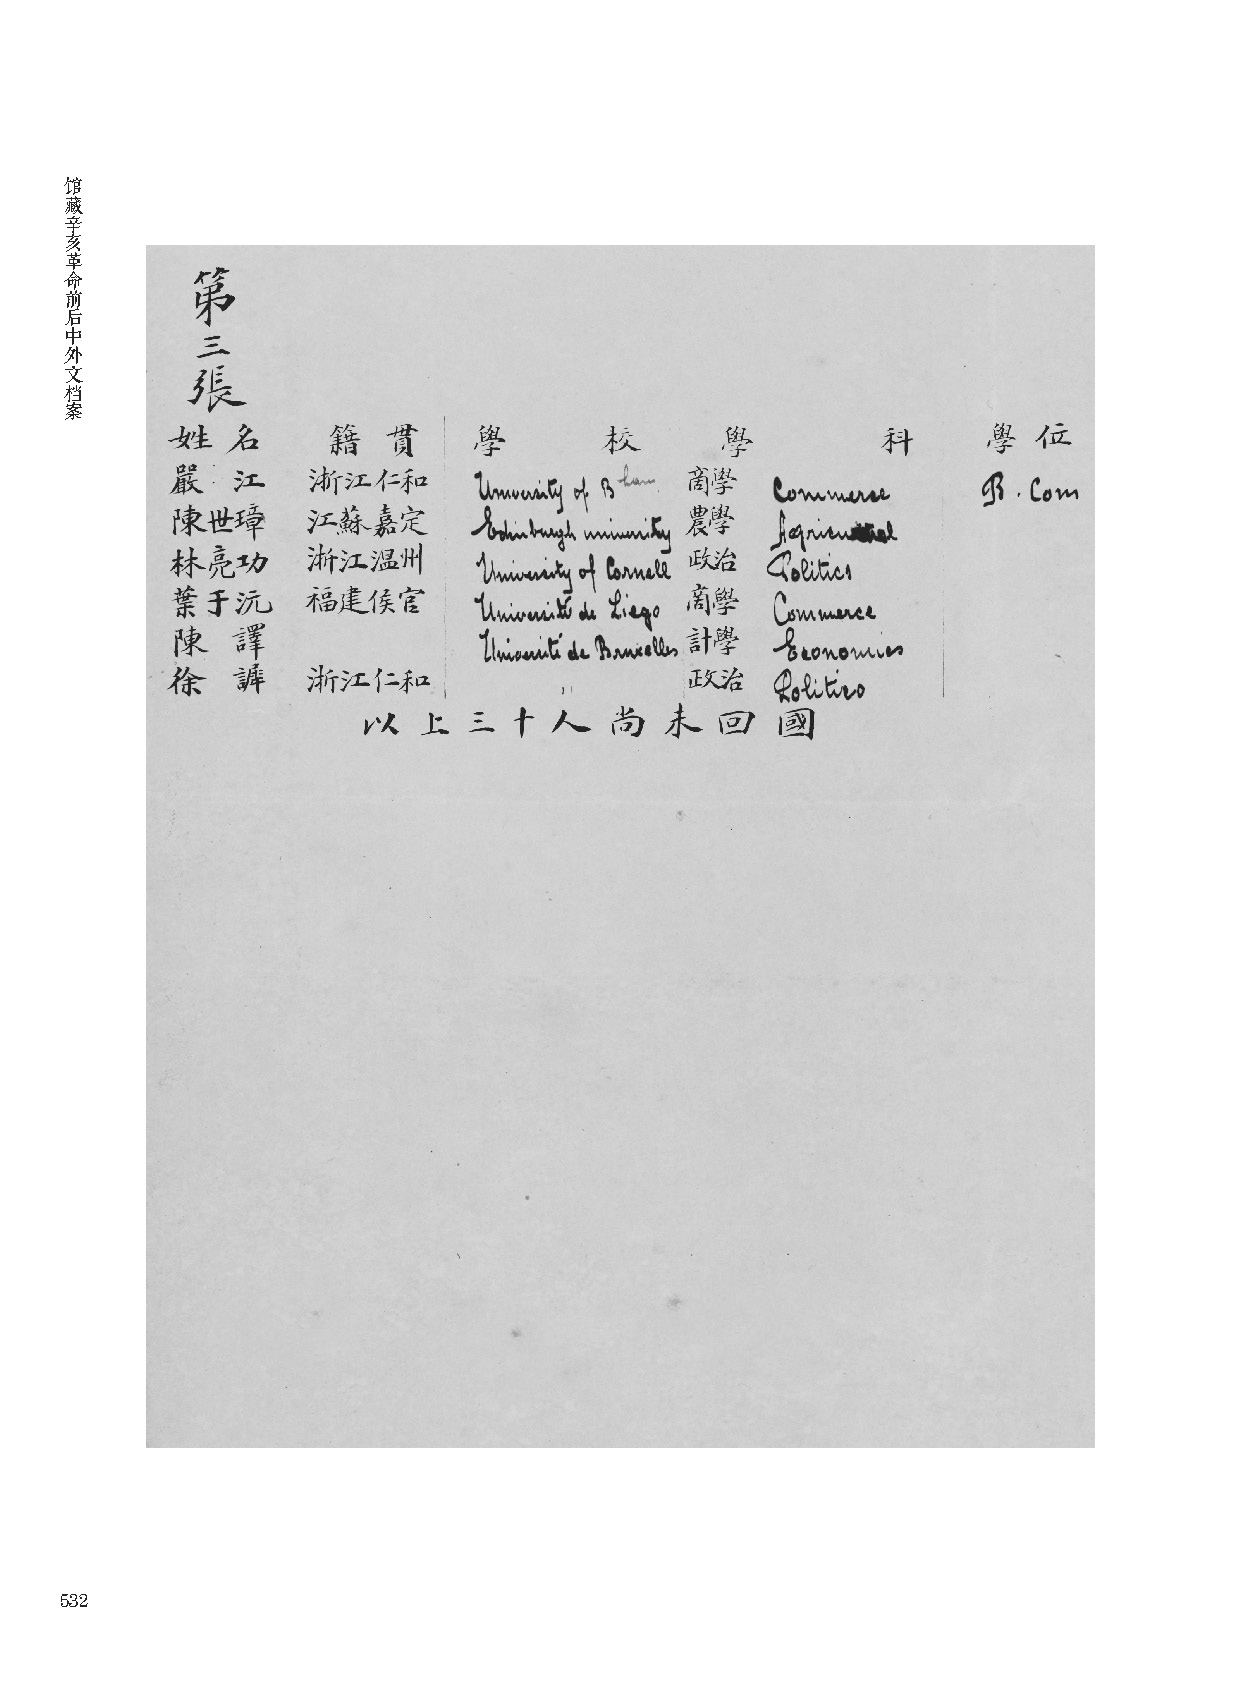 馆藏辛亥革命前后中外文档案
第三張
姓名 籍貫 學校 學科 學位
嚴江 浙江仁和 University of Bham 商學 Commerce B. Com
陳世璋 江蘇嘉定 Edinburgh university 農學
林亮功 浙江温州 University of Cornell 政治 Politics
葉于沅 福建侯官 Université de Liege 商學 Commerce
陳譯 Université de Bruxelles 計學 Economics
徐 浙江仁和 政治 Politics
以上三十人尚未回國
532